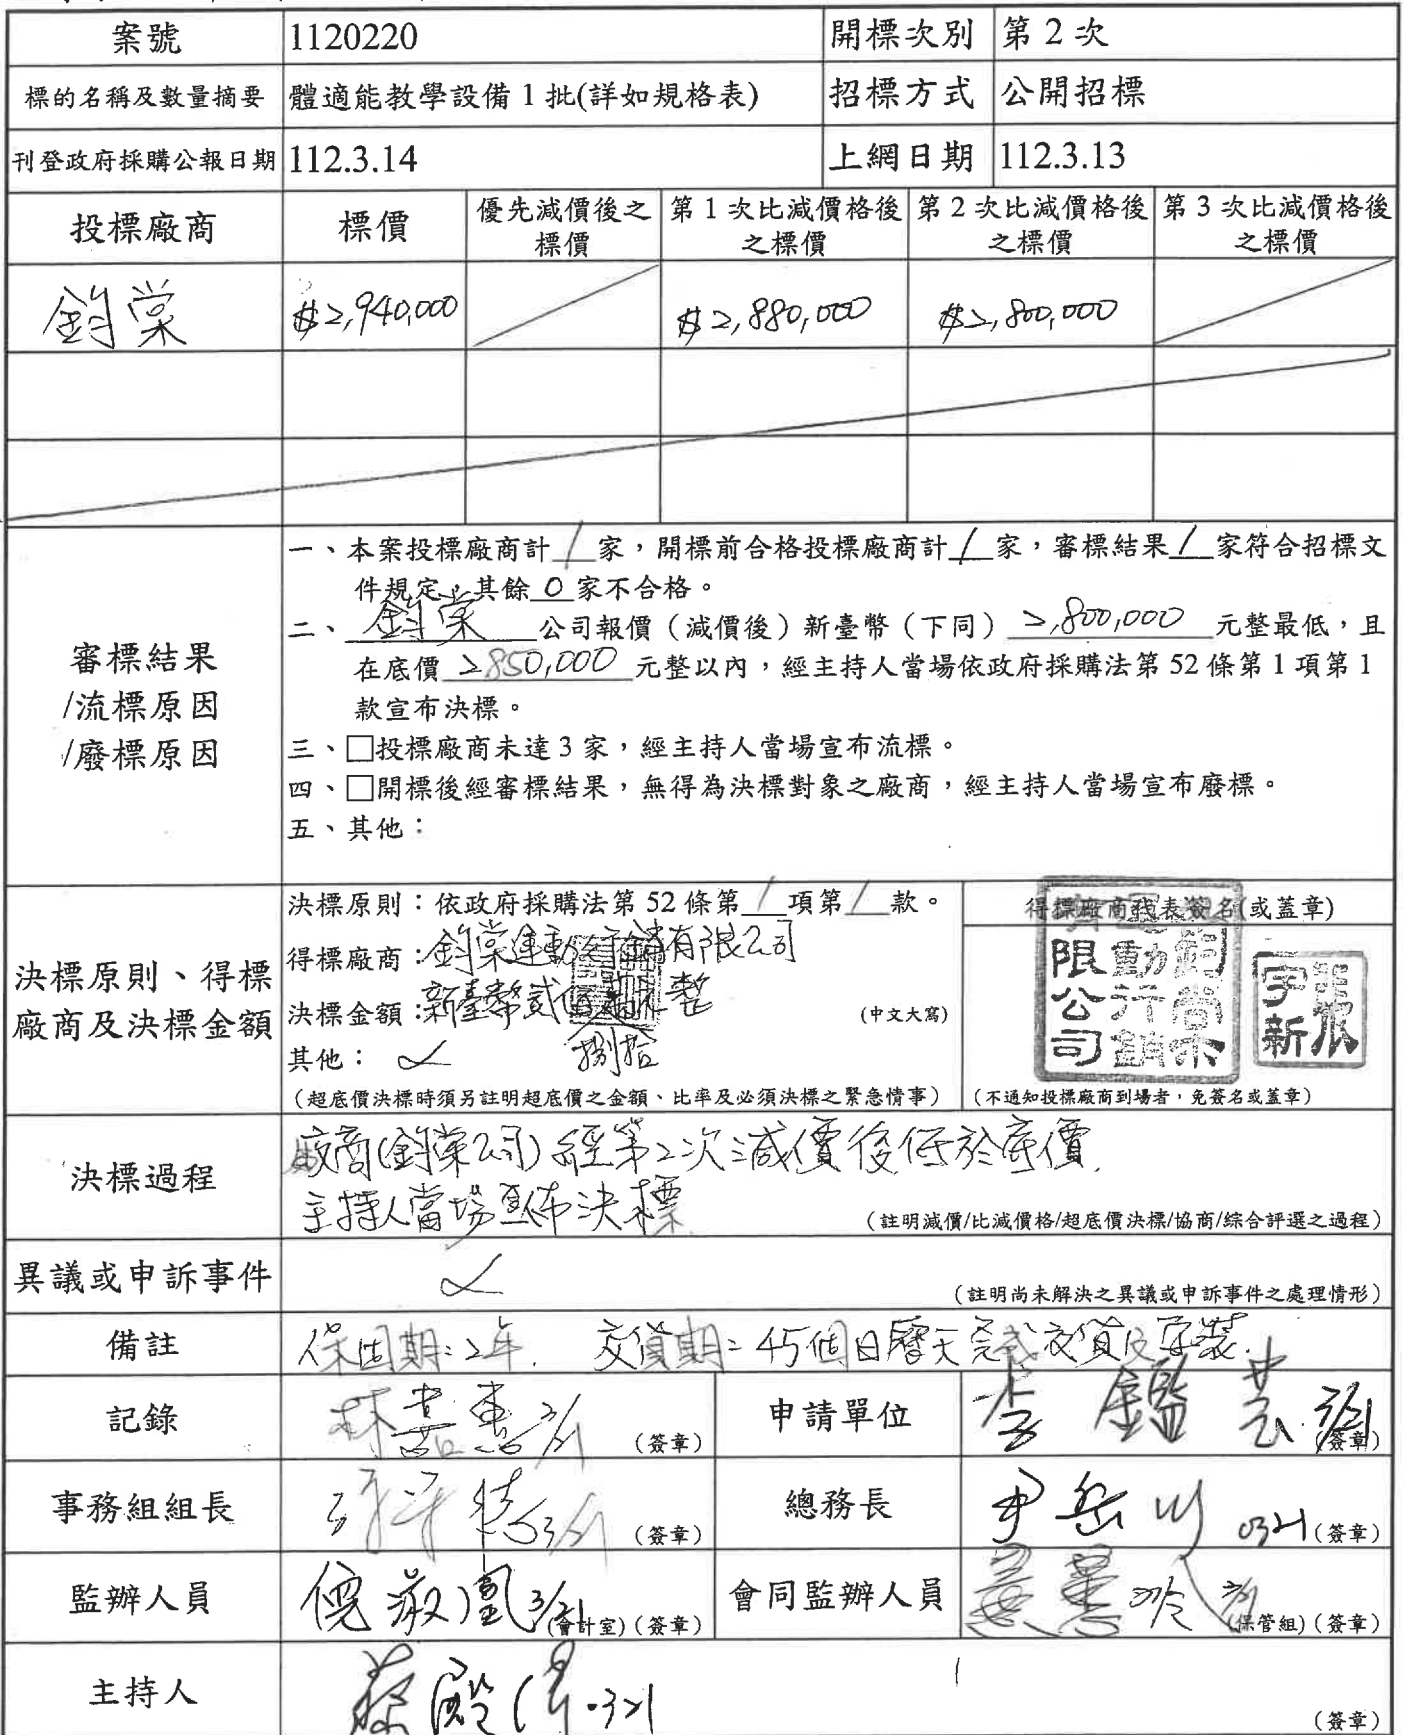 案號 1120220 開標次別 第 2 次
標的名稱及數量摘要 體適能教學設備 1 批(詳如規格表) 招標方式 公開招標
刊登政府採購公報日期 112.3.14 上網日期 112.3.13
投標廠商 標價 優先減價後之標價 第 1 次比減價格後之標價 第 2 次比減價格後之標價 第 3 次比減價格後之標價
鈞棠 $2,940,000 $2,880,000 $2,800,000
審標結果
/流標原因
/廢標原因
一、本案投標廠商計 1 家，開標前合格投標廠商計 1 家，審標結果 1 家符合招標文
件規定，其餘 0 家不合格。
二、 鈞棠 公司報價（減價後）新臺幣（下同） 2,800,000 元整最低，且
在底價 2,850,000 元整以內，經主持人當場依政府採購法第 52 條第 1 項第 1
款宣布決標。
三、□投標廠商未達 3 家，經主持人當場宣布流標。
四、□開標後經審標結果，無得為決標對象之廠商，經主持人當場宣布廢標。
五、其他：
決標原則、得標
廠商及決標金額
決標原則：依政府採購法第 52 條第 1 項第 1 款。
得標廠商：鈞棠運動行銷有限公司
決標金額：新臺幣貳佰捌拾萬元整 (中文大寫)
其他：
(超底價決標時須另註明超底價之金額、比率及必須決標之緊急情事)
得標廠商代表簽名(或蓋章)
鈞棠運動行銷有限公司
(不通知投標廠商到場者，免簽名或蓋章)
決標過程
廠商(鈞棠公司)經第2次減價後低於底價,
主持人當場宣佈決標
(註明減價/比減價格/超底價決標/協商/綜合評選之過程)
異議或申訴事件 (註明尚未解決之異議或申訴事件之處理情形)
備註 保固期:2年. 交貨期:45個日曆天完成交貨及安裝.
記錄 3/21 (簽章) 申請單位 3/21 (簽章)
事務組組長 03/21 (簽章) 總務長 尹岳川 0321 (簽章)
監辦人員 倪淑凰 3/21 (會計室)(簽章) 會同監辦人員 3/21 (保管組)(簽章)
主持人 0321 (簽章)